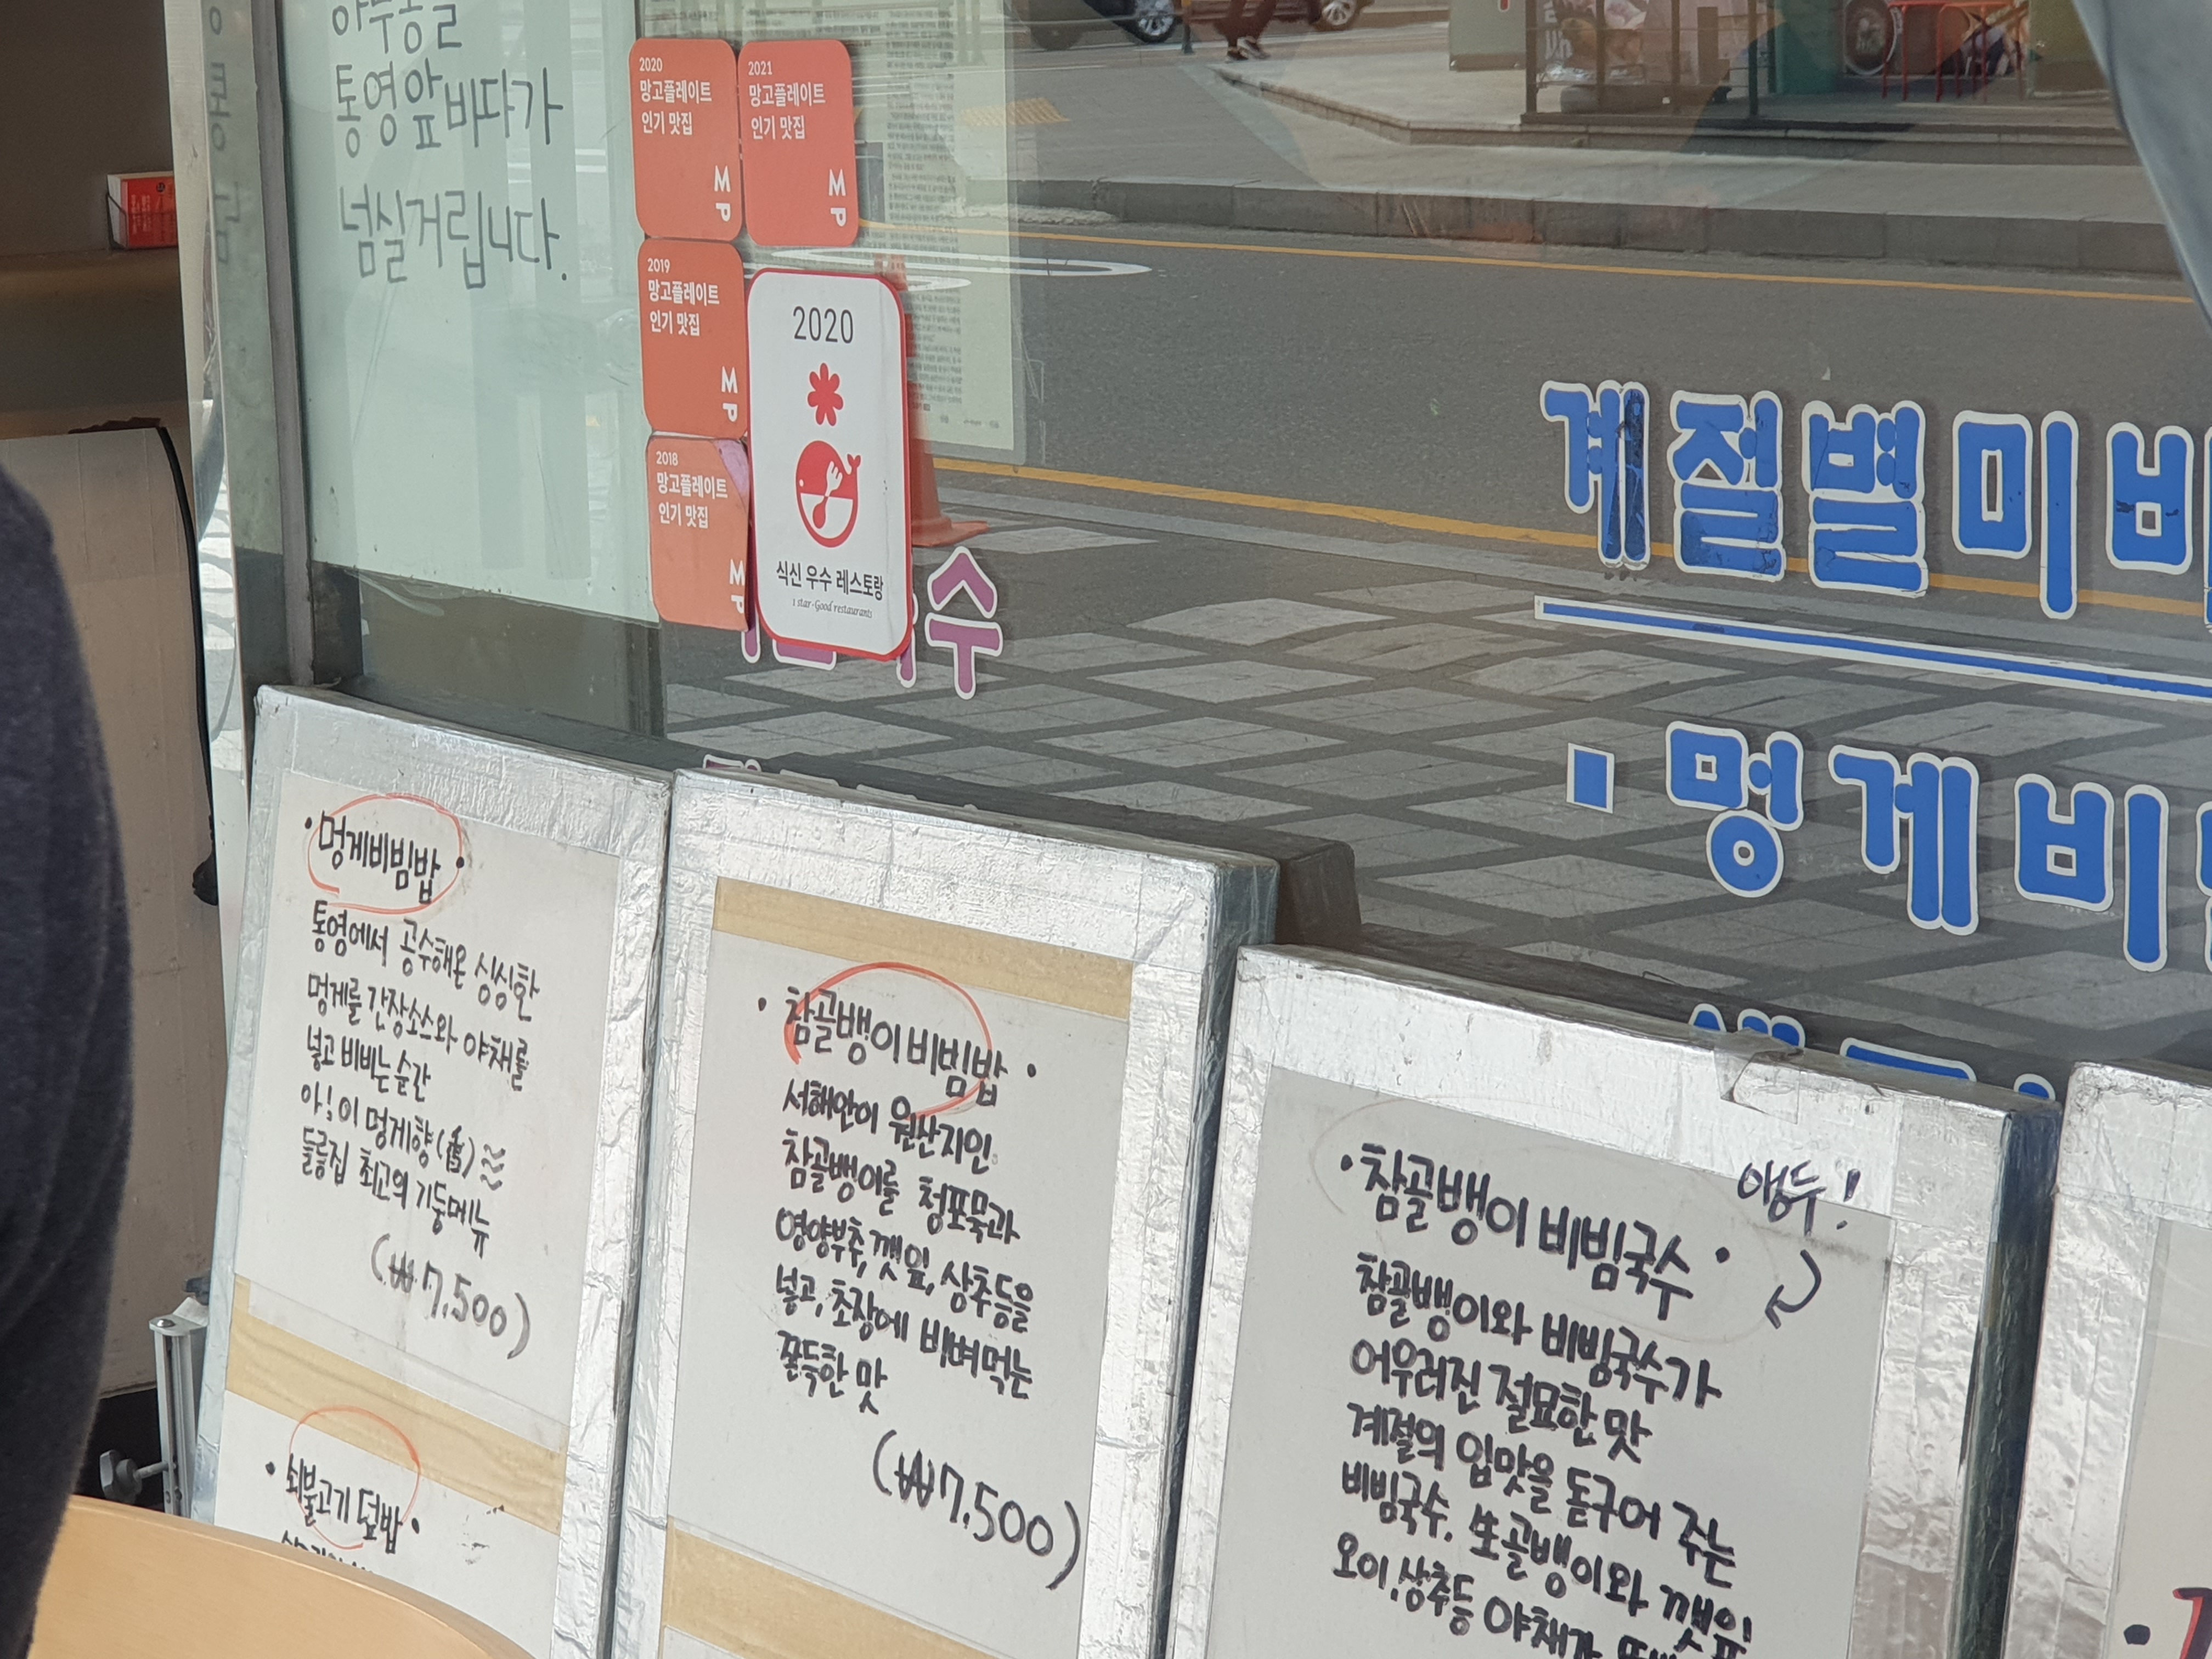 통영앞바다가
넘실거립니다.
2020
망고플레이트
인기 맛집
MP
2021
망고플레이트
인기 맛집
MP
2019
망고플레이트
인기 맛집
MP
2018
망고플레이트
인기 맛집
MP
2020
식신 우수 레스토랑
1 star-Good restaurants
수
계절별미비
멍게비
·멍게비빔밥·
통영에서 공수해온 싱싱한
멍게를 간장소스와 야채를
넣고 비비는 순간
아! 이 멍게향(香)
둘둘집 최고의 기둥메뉴
(₩7,500)
·쇠불고기 덮밥·
·참골뱅이 비빔밥·
서해안이 원산지인
참골뱅이를 청포묵과
영양부추, 깻잎, 상추등을
넣고, 초장에 비벼먹는
쫄득한 맛
(₩7,500)
앵두!
·참골뱅이 비빔국수·
참골뱅이와 비빔국수가
어우러진 절묘한 맛
계절의 입맛을 돋구어 주는
비빔국수. 生골뱅이와 깻잎
오이, 상추등 야채가